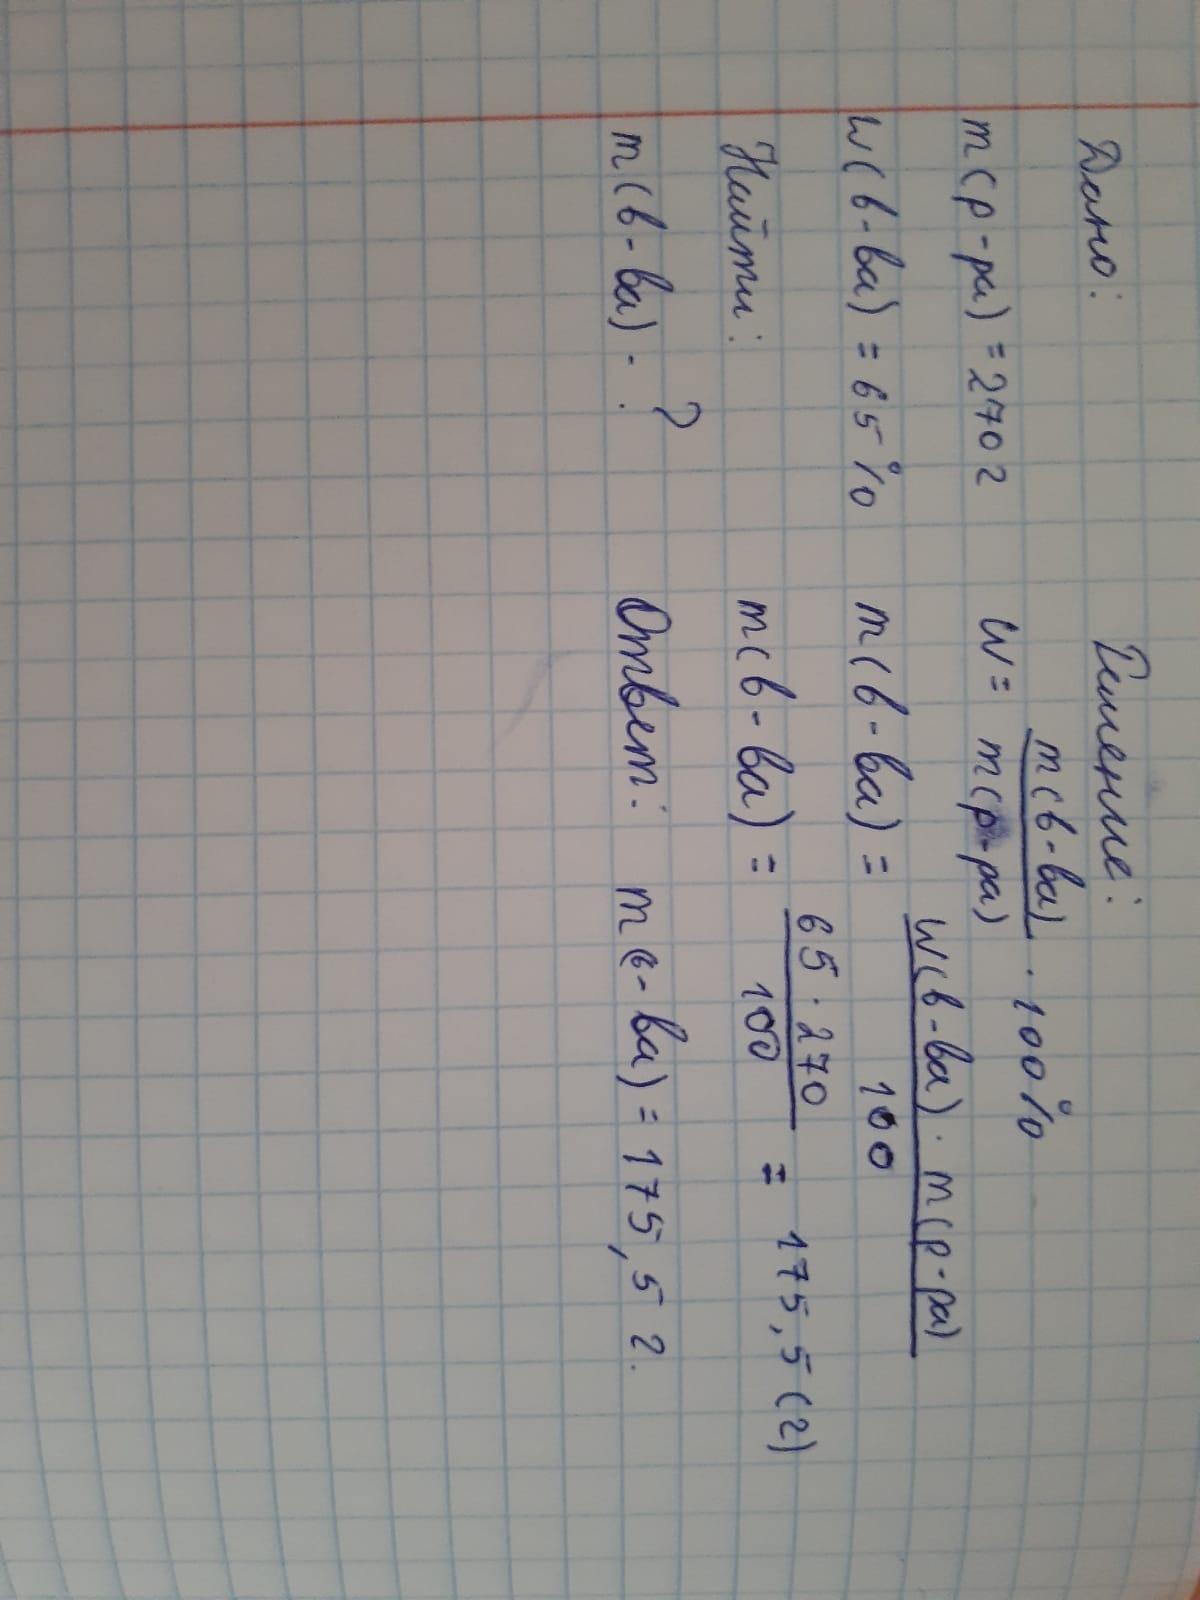 Дано:
m(р-ра) = 270 г
W(в-ва) = 65 %
Найти:
m(в-ва) - ?
Решение:
W = m(в-ва) / m(р-ра) · 100 %
m(в-ва) = W(в-ва) · m(р-ра) / 100
m(в-ва) = 65 · 270 / 100 = 175,5 (г)
Ответ: m(в-ва) = 175,5 г.